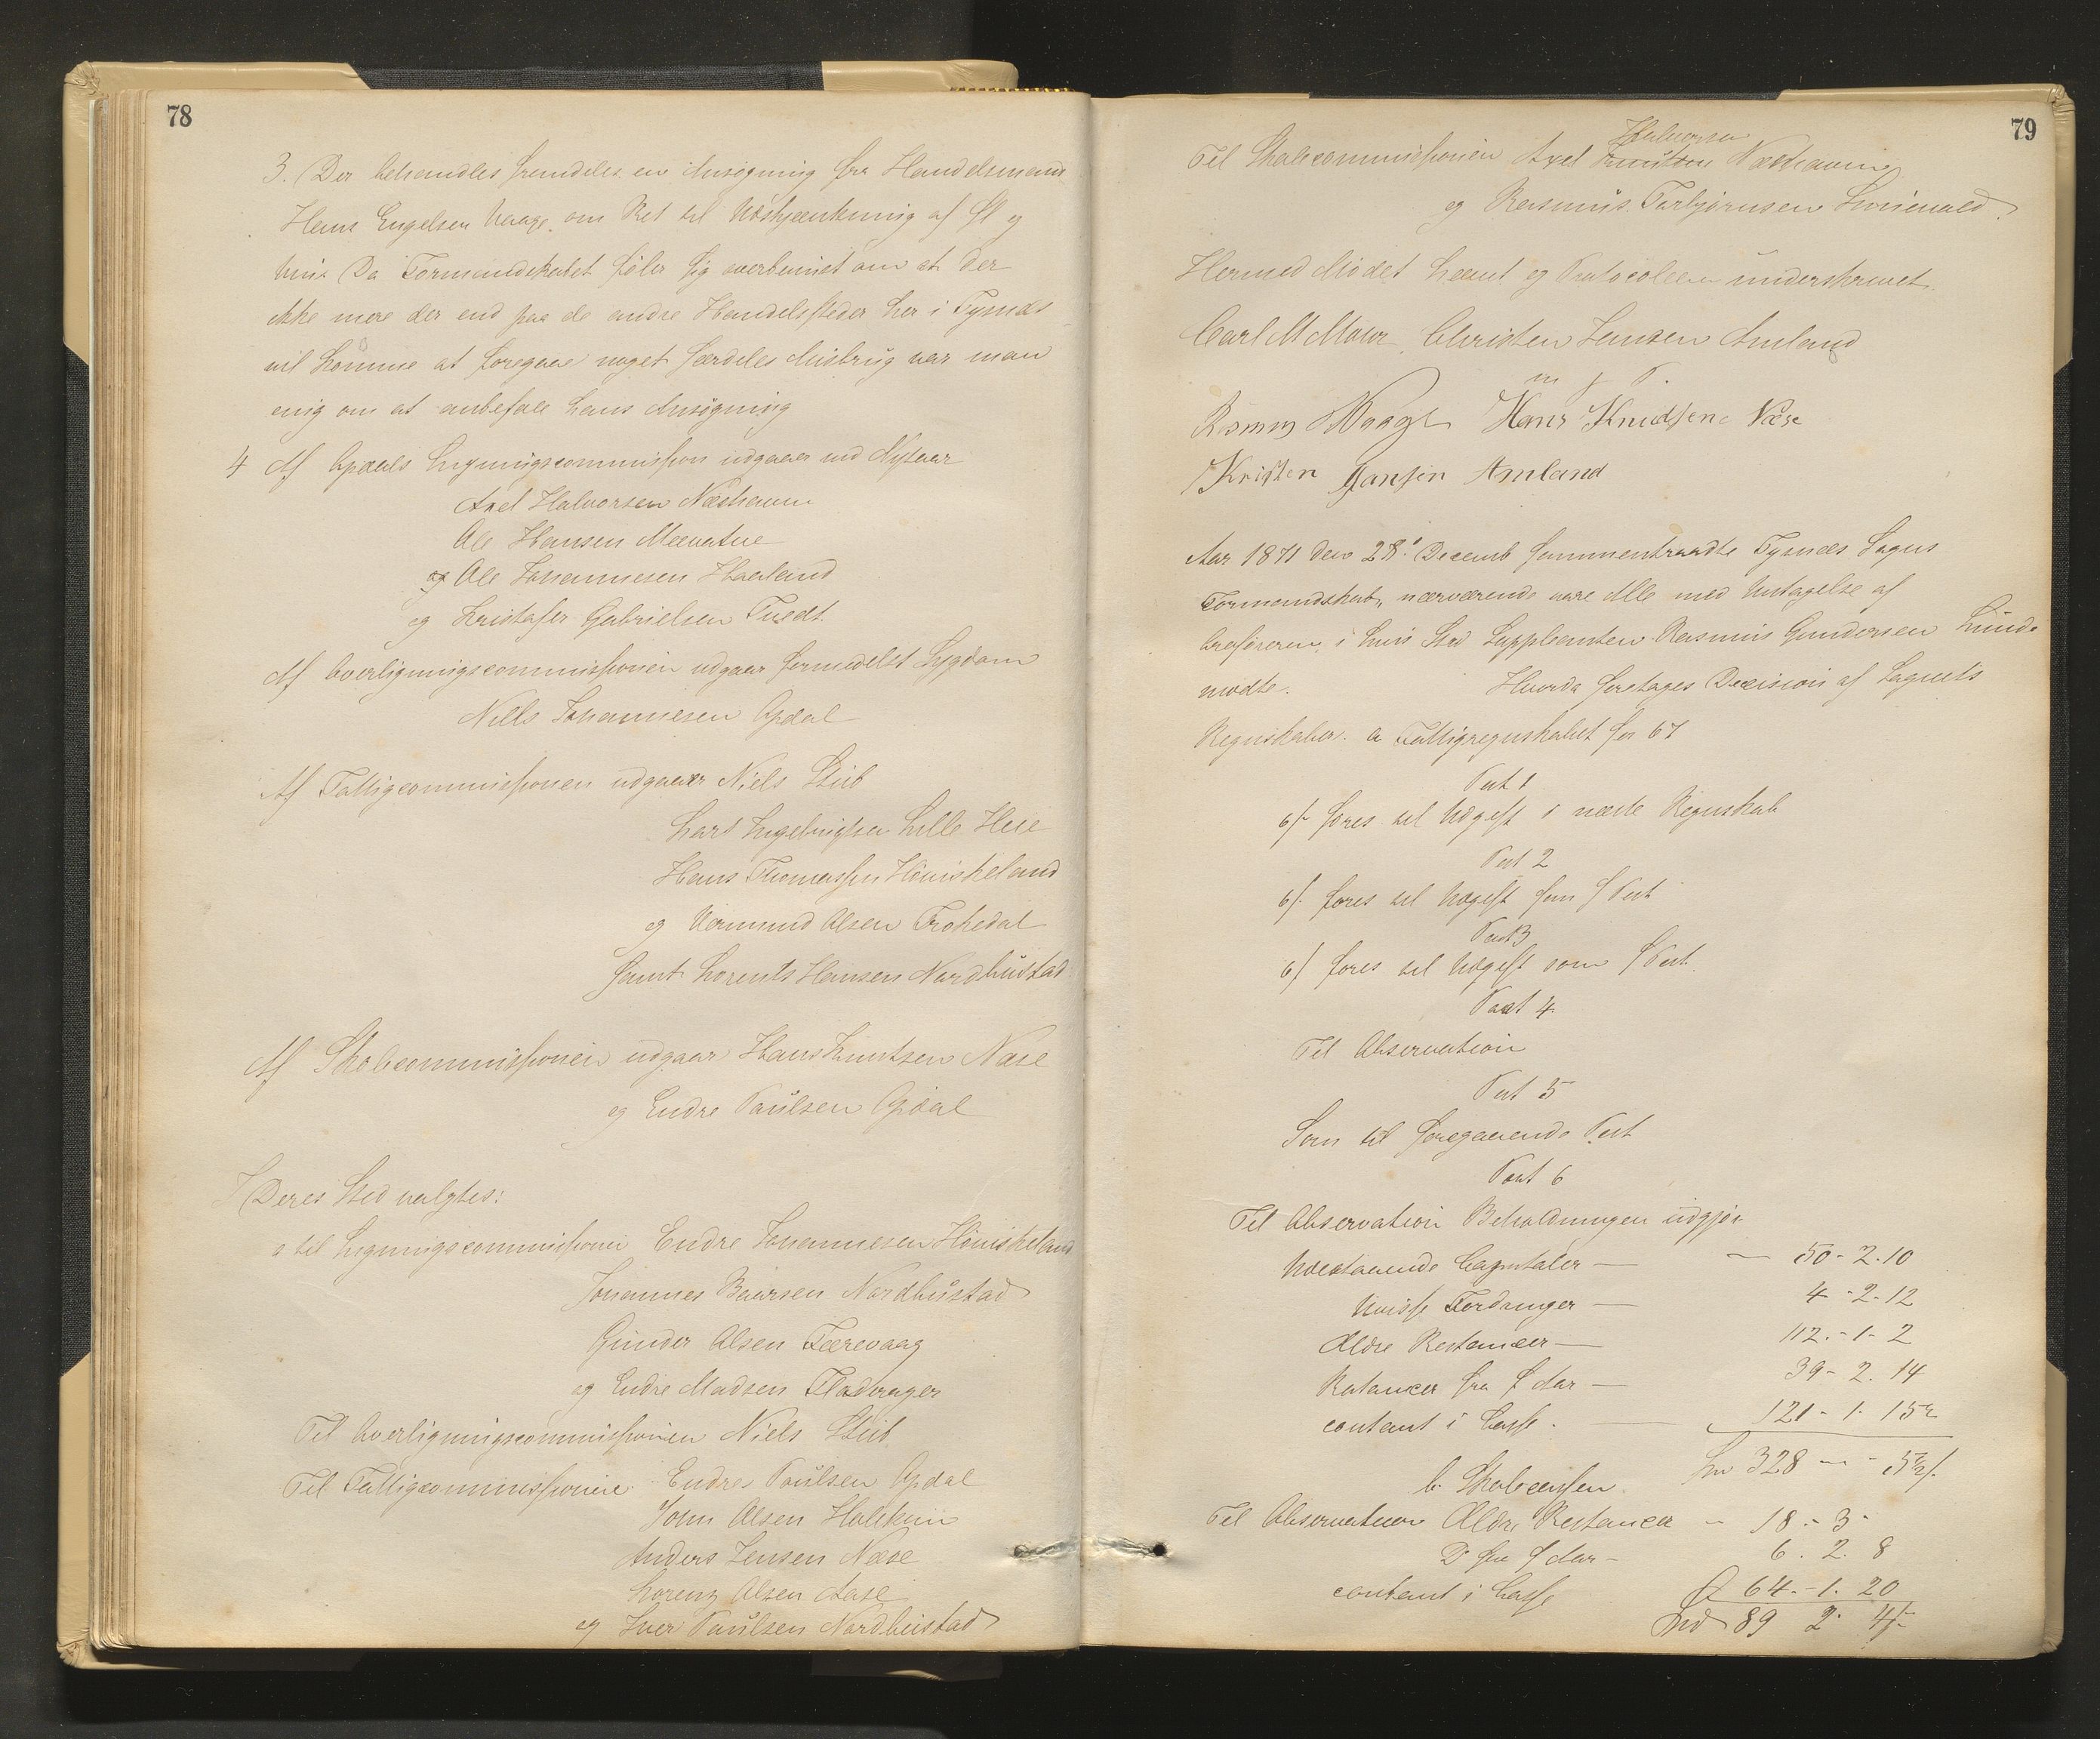 78
3. Der behandles fremdeles en Ansøgning fra Handelsmand
Hans Engelsen Vaage om Ret til Udskjænkning af Øl og
Viin. Da Formandskabet føler sig overbeviist om at der
ikke mere der end paa de andre Handelssteder her i Tysnæs
vil komme at foregaae noget særdeles Misbrug var man
enig om at anbefale hans Ansøgning
4 Af Opdals Ligningscommission udgaaer ved Nytaar
Axel Halvorsen Næshavn
Ole Hansen Mævatne
og Ole Johannesen Haaland
og Kristafer Gabrielsen Tvedt
Af Overligningscommissionen udgaar formedelst Sygdom
Nills Johannesen Opdal
Af Fattigcommissionen udgaaer Niels Stub
Lars Ingebrigtsen Lille Heie
Hans Thomassen Høviskeland
og Vermund Olsen Frøkedal
samt Lorents Hansen Nordhustad
Af Skolecommissionen udgaar Hans Knutsen Næse
og Endre Paulsen Opdal
I Deres Sted valgtes:
a til Ligningscommissionen Endre Johannesen Høviskeland
Johannes Baarsen Nordhustad
Gunder Olsen Færevaag
og Endre Madsen Fladrager
Til Overligningscommissionen Niels Stub
Til Fattigcommissionen Endre Paulsen Opdal
John Olsen Haleim
Anders Jensen Næse
Lorenz Olsen Aase
og Iver Paulsen Nordhustad
79
Halvorsen
Til Skolecommissionen Axel Knutsen Næshavn
og Rasmus Torbjørnsen
Hermed Mødet hævet og Protocollen underskrevet.
Carl M Mowr Christen Jensen Amland
m f P.
Rasmus Waage Hans Knudsen Næse
Kristen Jansen Amland
Aar 1871 den 28. Decemb sammentraadte Tysnæs Sogns
Formandskab, nærværende vare Alle med Untagelse af
i hvis Sted Suppleanten Rasmus Gundersen Lunde
mødte. Hvorda foretages Decision af Sognets
Regnskaber. a Fattigregnskabet for 67
Post 1
6/- føres til Udgift i næste Regnskab
Post 2
6/. føres til Udgift som f Post
Post 3
6/ føres til Udgift som f Post
Post 4
Til Observation
Post 5
Som til foregaaende Post
Post 6
Til Observation Beholdningen udgjør
Udestaaende Capitaler — 50 - 2. 10
Uvisse Fordringer — 4 - 2 - 12
Ældre Restancer — 112. - 1 - 2
Restancer fra f Aar — 39 - 2. 14
contant i Casse. — 121 - 1. 15½
328 — - 5½/.
b. Skolecassen.
Til Observation Ældre Restancer - 18. - 3 -
D fra f Aar - 6. 2. 8
contant i Casse 64. - 1. 20
89 2. 4/-